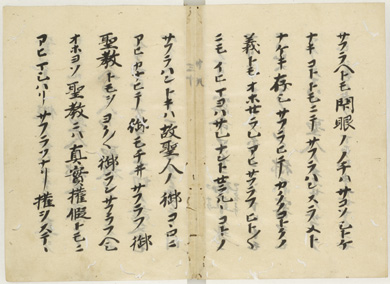 サフラヘトモ閉眼ノノチハサコソシトケ
ナキコトトモニテサフラハンスラメト
ナケキ存シサフラヒテカクノコトクノ
義トモオホセラレアヒサフラフヒト〱
ニモイヒマヨハサレナントセラルヽコトノ
サフラハントキハ故聖人ノ御コヽロニ
アヒカナヒテ御モチヰサフラフ御
聖教トモヲヨク〱御ランサフラフヘシ
オホヨソ聖教ニハ真實權假トモニ
アヒマシハリサフラフナリ權ヲステヽ